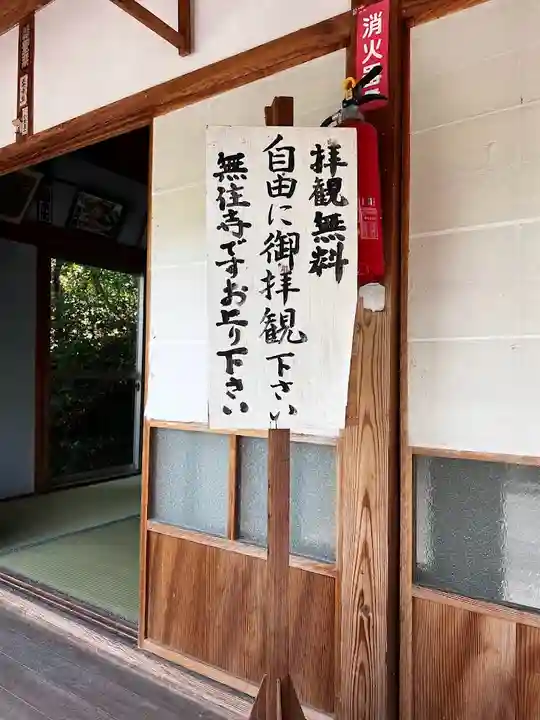 拝観無料
自由に御拝観下さい
無住寺ですお上り下さい
消火器